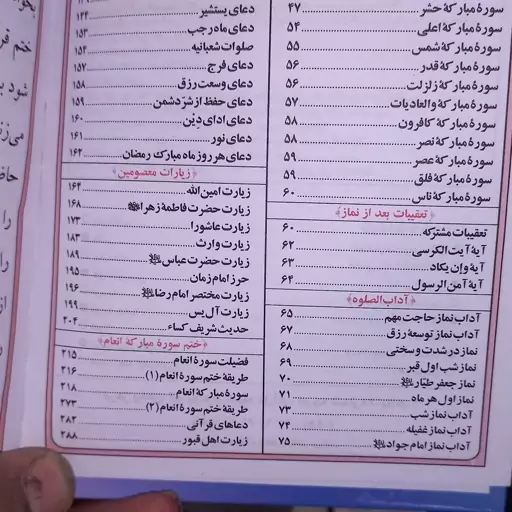 سورهٔ مبارکهٔ حشر ۴۷
سورهٔ مبارکهٔ اعلی ۵۴
سورهٔ مبارکهٔ شمس ۵۵
سورهٔ مبارکهٔ قدر ۵۶
سورهٔ مبارکهٔ زلزلت ۵۶
سورهٔ مبارکهٔ والعادیات ۵۷
سورهٔ مبارکهٔ کافرون ۵۸
سورهٔ مبارکهٔ نصر ۵۸
سورهٔ مبارکهٔ عصر ۵۹
سورهٔ مبارکهٔ فلق ۵۹
سورهٔ مبارکهٔ ناس ۶۰
﴿تعقیبات بعد از نماز﴾
تعقیبات مشترکه ۶۰
آیهٔ آیت الکرسی ۶۲
آیهٔ وإن یکاد ۶۳
آیهٔ آمن الرسول ۶۴
﴿آداب الصلوه﴾
آداب نماز حاجت مهم ۶۵
آداب نماز توسعهٔ رزق ۶۷
نماز در شدت و سختی ۶۸
نماز شب اول قبر ۶۹
نماز جعفر طیار ۷۰
نماز اول هر ماه ۷۱
آداب نماز شب ۷۳
آداب نماز غفیله ۷۴
آداب نماز امام جواد ۷۵
دعای یستشیر ۱۴۴
دعای ماه رجب ۱۵۳
صلوات شعبانیه ۱۵۴
دعای فرج ۱۵۷
دعای وسعت رزق ۱۵۸
دعای حفظ از شرّ دشمن ۱۵۹
دعای ادای دِیْن ۱۶۰
دعای نور ۱۶۱
دعای هر روز ماه مبارک رمضان ۱۶۲
﴿زیارات معصومین﴾
زیارت امین الله ۱۶۴
زیارت حضرت فاطمهٔ زهرا ۱۶۸
زیارت عاشورا ۱۷۳
زیارت وارث ۱۸۳
زیارت حضرت عباس ۱۸۹
حرز امام زمان ۱۹۵
زیارت مختصر امام رضا ۱۹۶
زیارت آل یس ۱۹۹
حدیث شریف کساء ۲۰۴
﴿ختم سورهٔ مبارکهٔ انعام﴾
فضیلت سورهٔ انعام ۲۱۵
طریقهٔ ختم سورهٔ انعام (۱) ۲۱۶
سورهٔ مبارکهٔ انعام ۲۱۸
طریقهٔ ختم سورهٔ انعام (۲) ۲۷۳
دعاهای قرآنی ۲۸۲
زیارت اهل قبور ۲۸۸
ختم
شود
را
را